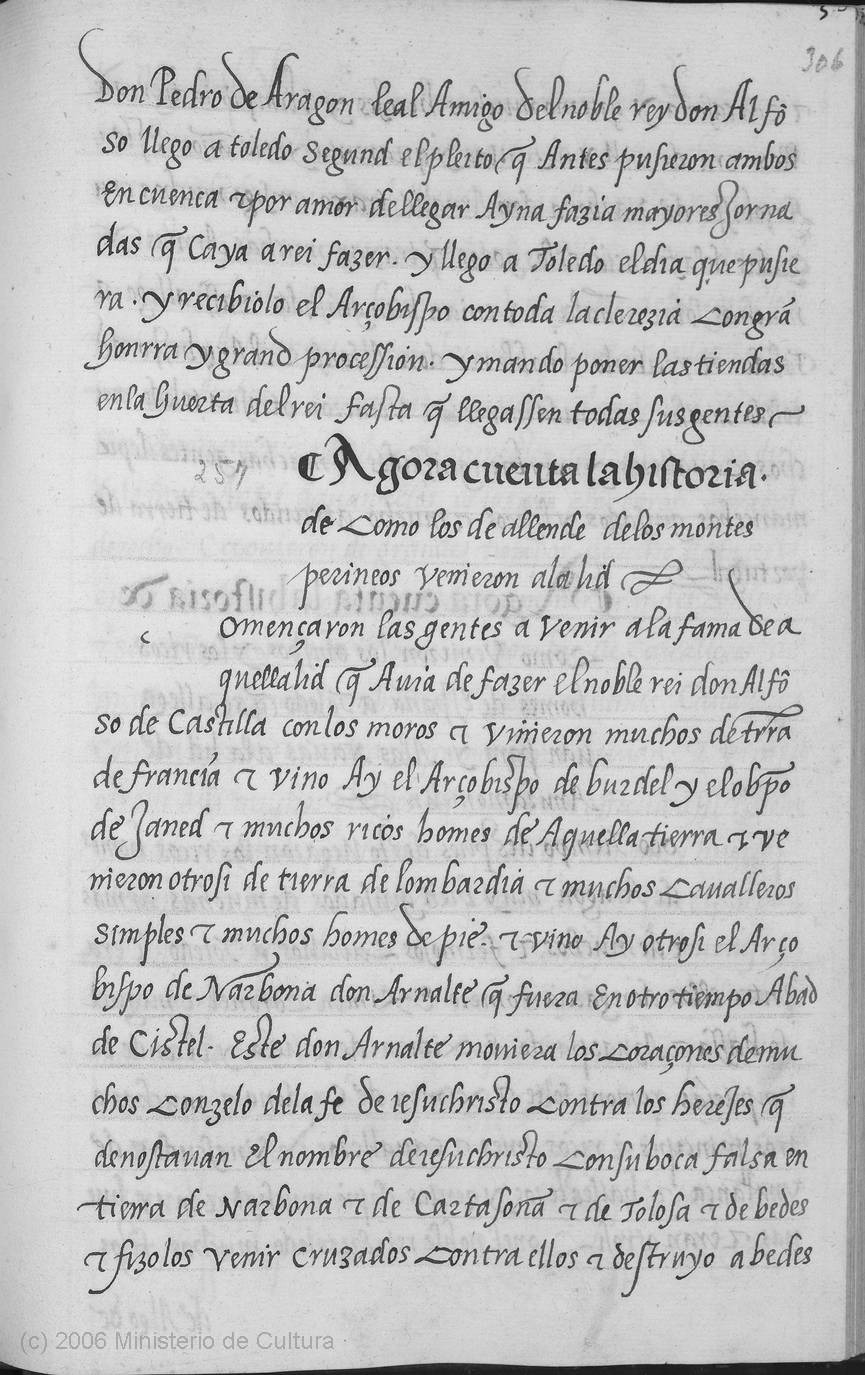 306
Don Pedro de Aragon leal Amigo del noble rey don Alfõ
so llego a toledo segund el pleito q̃ Antes pusieron ambos
En cuenca ꞇ por amor de llegar Ayna fazia mayores Jorna
das q̃ Caya a rei fazer. y llego a Toledo el dia que pusie
ra. y recibiolo el Arçobispo con toda la clerezia con grã
honrra y grand procession. y mando poner las tiendas
en la huerta del rei fasta q̃ llegassen todas sus gentes
257
¶ Agora cuenta la historia.
de como los de allende de los montes
perineos venieron a la lid
c omençaron las gentes a venir a la fama de a
quella lid q̃ Auia de fazer el noble rei don Alfõ
so de Castilla con los moros ꞇ vinieron muchos de trr̃a
de francia ꞇ vino Ay el Arçobispo de burdel y el obp̃o
de Janed ꞇ muchos ricos homes de Aquella tierra ꞇ ve
nieron otrosi de tierra de lombardia ꞇ muchos cavalleros
simples ꞇ muchos homes de pie. ꞇ vino Ay otrosi el Arço
bispo de Narbona don Arnalte q̃ fuera En otro tiempo Abad
de Cistel. Este don Arnalte moviera los coraçones de mu
chos con zelo de la fe de iesuchristo contra los herejes q̃
denostavan El nombre de iesuchristo con su boca falsa en
tierra de Narbona ꞇ de Cartasona ꞇ de Tolosa ꞇ de bedes
ꞇ fizolos venir cruzados contra ellos ꞇ destruyo a bedes
(c) 2006 Ministerio de Cultura